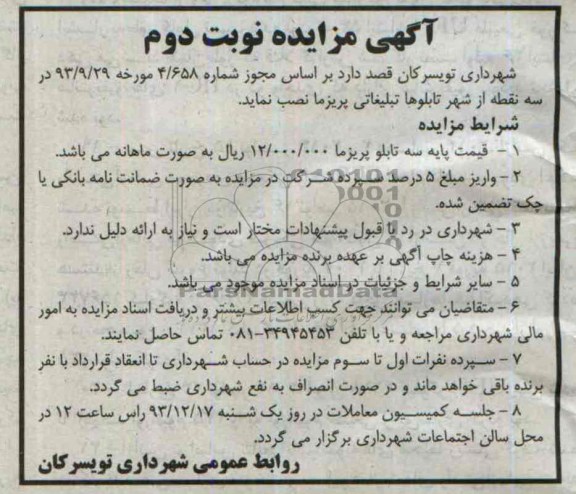 آگهی مزایده نوبت دوم
شهرداری تویسرکان قصد دارد بر اساس مجوز شماره ۴/۶۵۸ مورخه ۹۳/۹/۲۹ در
سه نقطه از شهر تابلوها تبلیغاتی پریزما نصب نماید.
شرایط مزایده
۱ - قیمت پایه سه تابلو پریزما ۱۲/۰۰۰/۰۰۰ ریال به صورت ماهانه می باشد.
۲ - واریز مبلغ ۵ درصد سپرده شرکت در مزایده به صورت ضمانت نامه بانکی یا
چک تضمین شده.
۳ - شهرداری در رد یا قبول پیشنهادات مختار است و نیاز به ارائه دلیل ندارد.
۴ - هزینه چاپ آگهی بر عهده برنده مزایده می باشد.
۵ - سایر شرایط و جزئیات در اسناد مزایده موجود می باشد.
ParsNamadData
۶ - متقاضیان می توانند جهت کسب اطلاعات بیشتر و دریافت اسناد مزایده به امور
مالی شهرداری مراجعه و یا با تلفن ۳۴۹۴۵۴۵۳-۰۸۱ تماس حاصل نمایند.
۷ - سپرده نفرات اول تا سوم مزایده در حساب شهرداری تا انعقاد قرارداد با نفر
برنده باقی خواهد ماند و در صورت انصراف به نفع شهرداری ضبط می گردد.
۸ - جلسه کمیسیون معاملات در روز یک شنبه ۹۳/۱۲/۱۷ راس ساعت ۱۲ در
محل سالن اجتماعات شهرداری برگزار می گردد.
روابط عمومی شهرداری تویسرکان